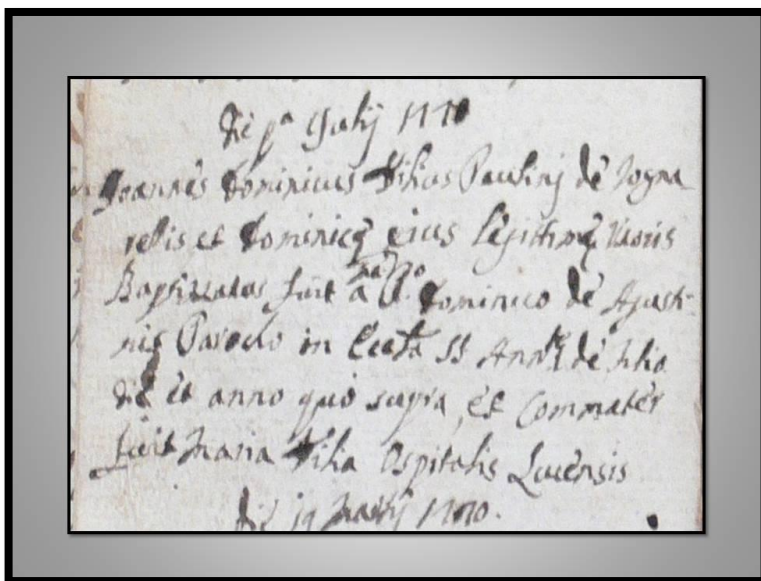 die pª Julij 1710
Joannes Dominicus filius Paulini de Togna
rellis et Dominicę eius legittimę Uxoris
Baptizzatus fuit a Dominico de Agusti-
nis Parocho in SS de
die et anno quo supra, et Commater
fuit Maria filia Ospitalis Lucensis
die 19 1710.